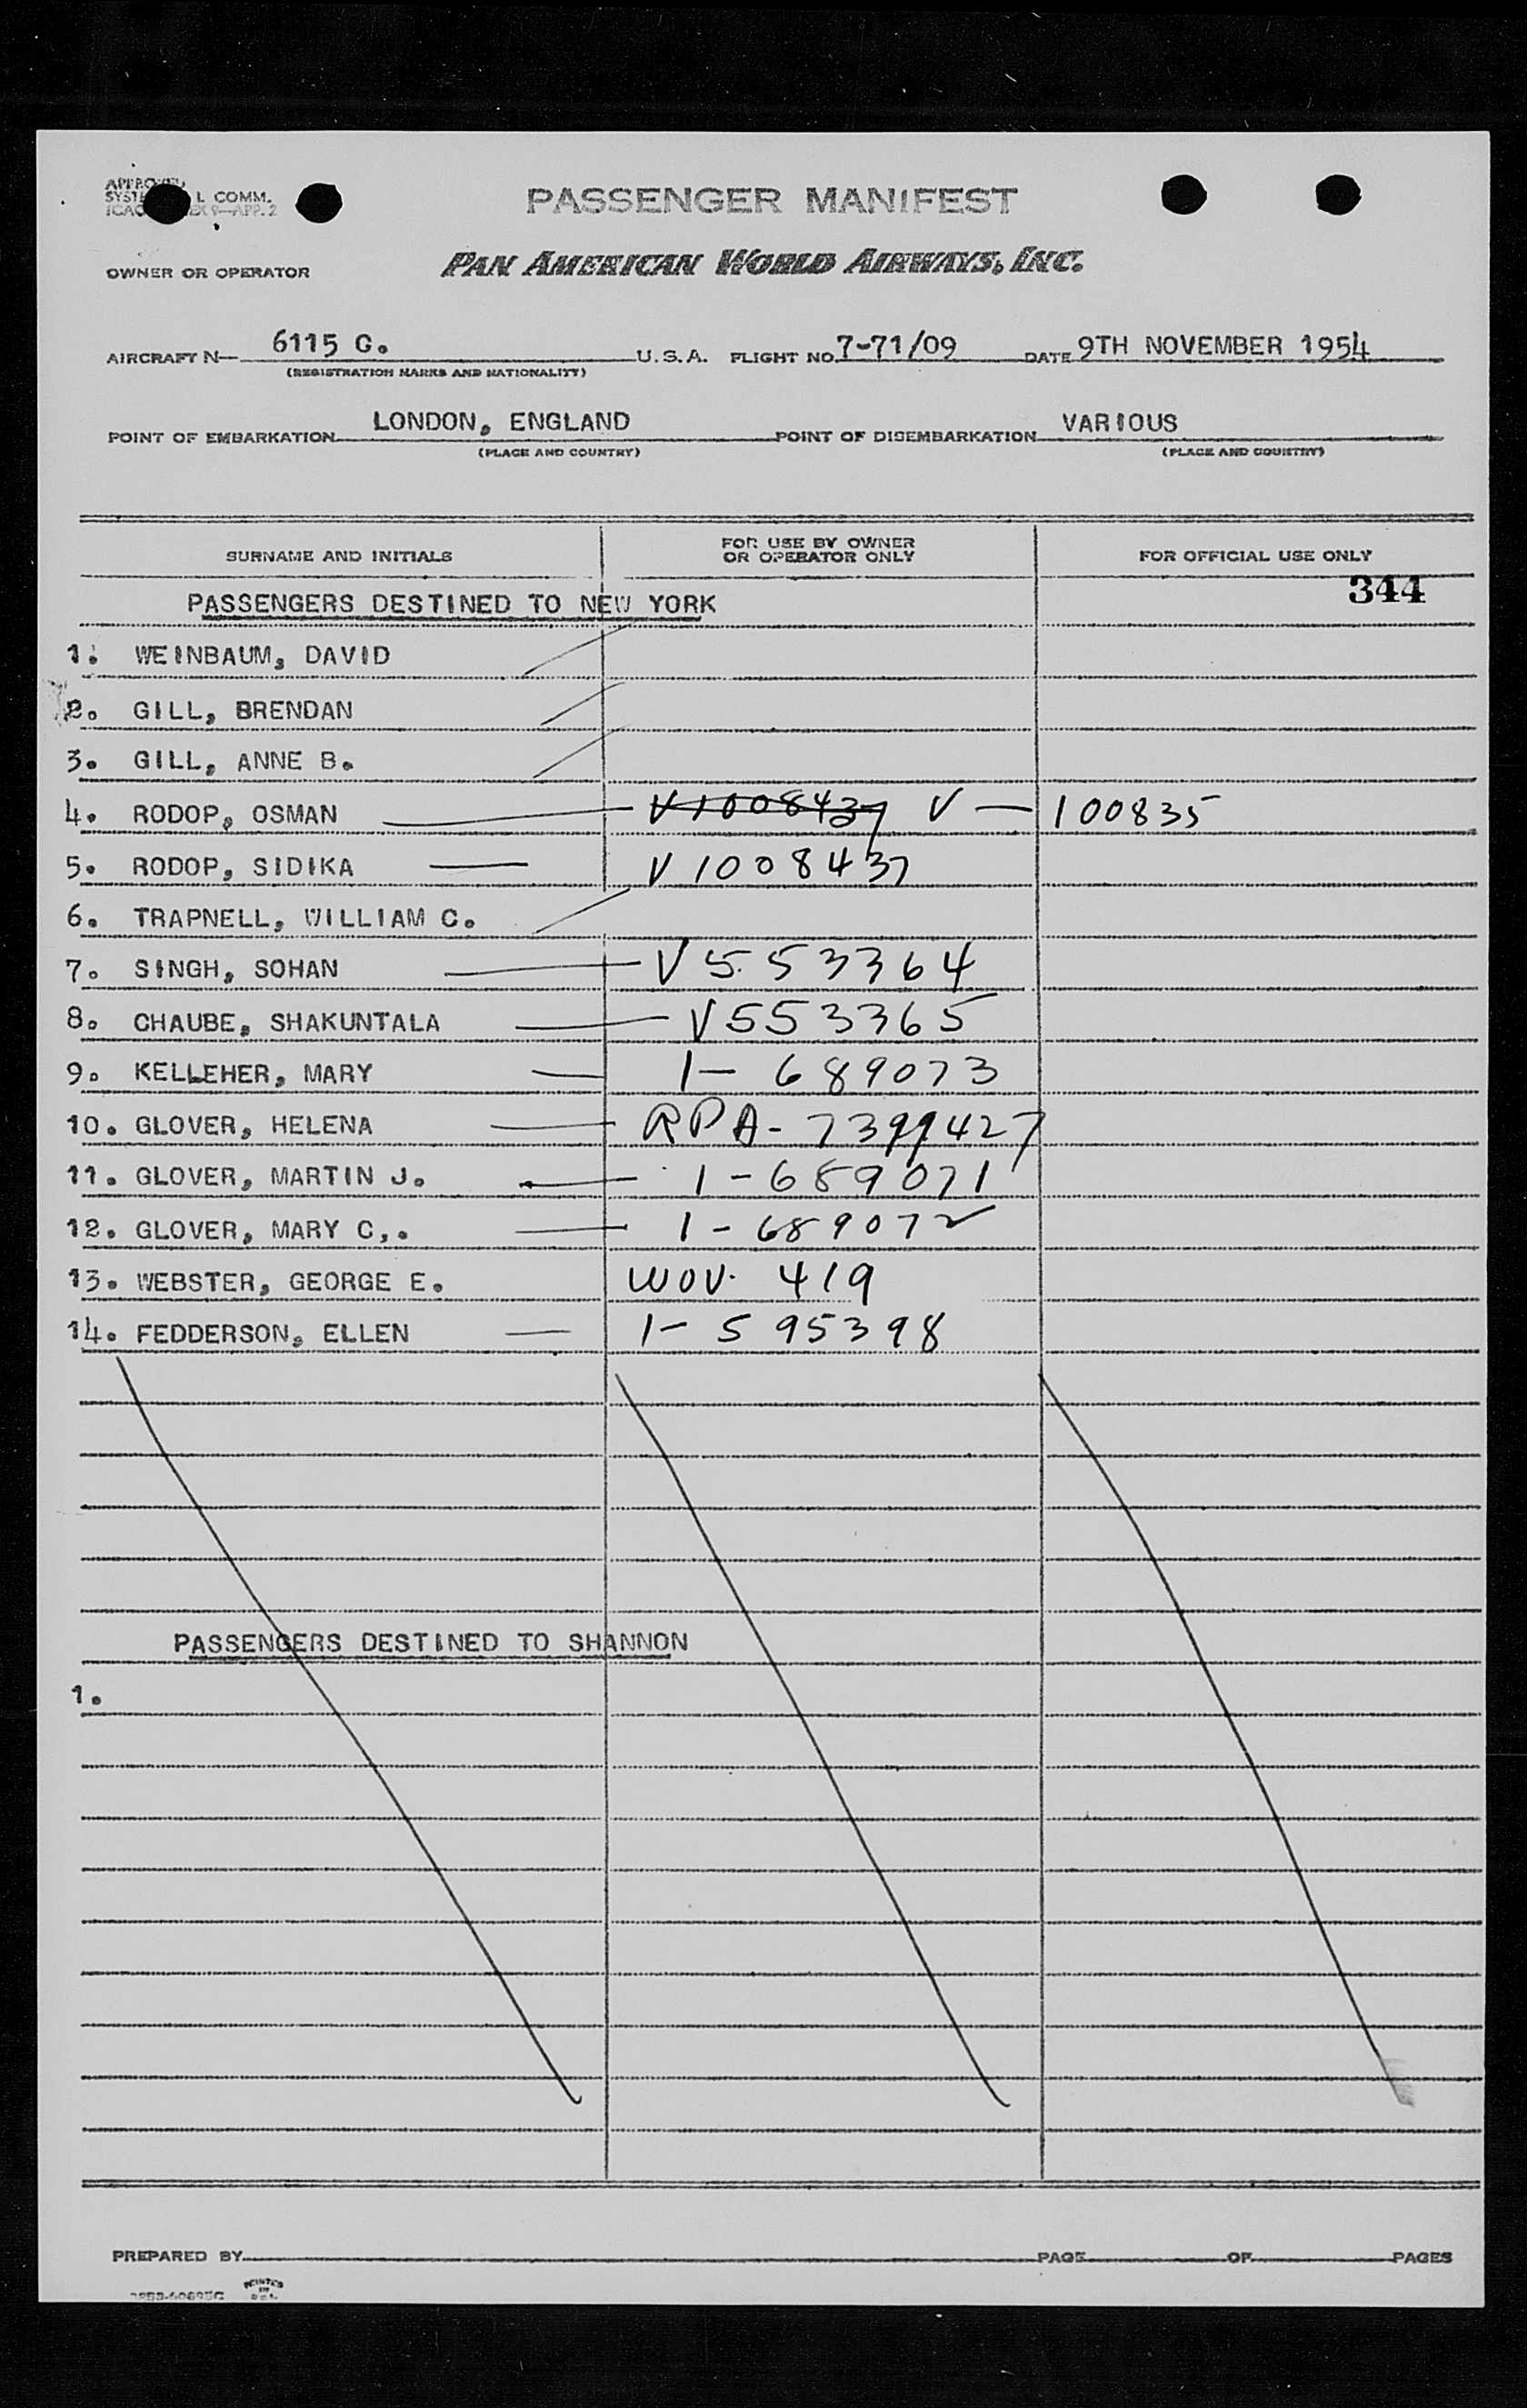 PASSENGER MANIFEST
L COMM.
OWNER OR OPERATOR PAN AMERICAN WORLD AIRWAYS, INC.
AIRCRAFT N— 6115 C. U.S.A. FLIGHT NO. 7-71/09 DATE 9TH NOVEMBER 1954
(REGISTRATION MARKS AND NATIONALITY)
POINT OF EMBARKATION LONDON, ENGLAND POINT OF DISEMBARKATION VARIOUS
(PLACE AND COUNTRY) (PLACE AND COUNTRY)
SURNAME AND INITIALS FOR USE BY OWNER OR OPERATOR ONLY FOR OFFICIAL USE ONLY
344
PASSENGERS DESTINED TO NEW YORK
1. WEINBAUM, DAVID
2. GILL, BRENDAN
3. GILL, ANNE B.
4. RODOP, OSMAN V1008437 V — 100835
5. RODOP, SIDIKA V1008437
6. TRAPNELL, WILLIAM C.
7. SINGH, SOHAN V553364
8. CHAUBE, SHAKUNTALA V553365
9. KELLEHER, MARY 1- 689073
10. GLOVER, HELENA RPA- 7399427
11. GLOVER, MARTIN J. 1-689071
12. GLOVER, MARY C,. 1-689072
13. WEBSTER, GEORGE E. WOV. 419
14. FEDDERSON, ELLEN 1- 595398
PASSENGERS DESTINED TO SHANNON
1.
PREPARED BY PAGE OF PAGES